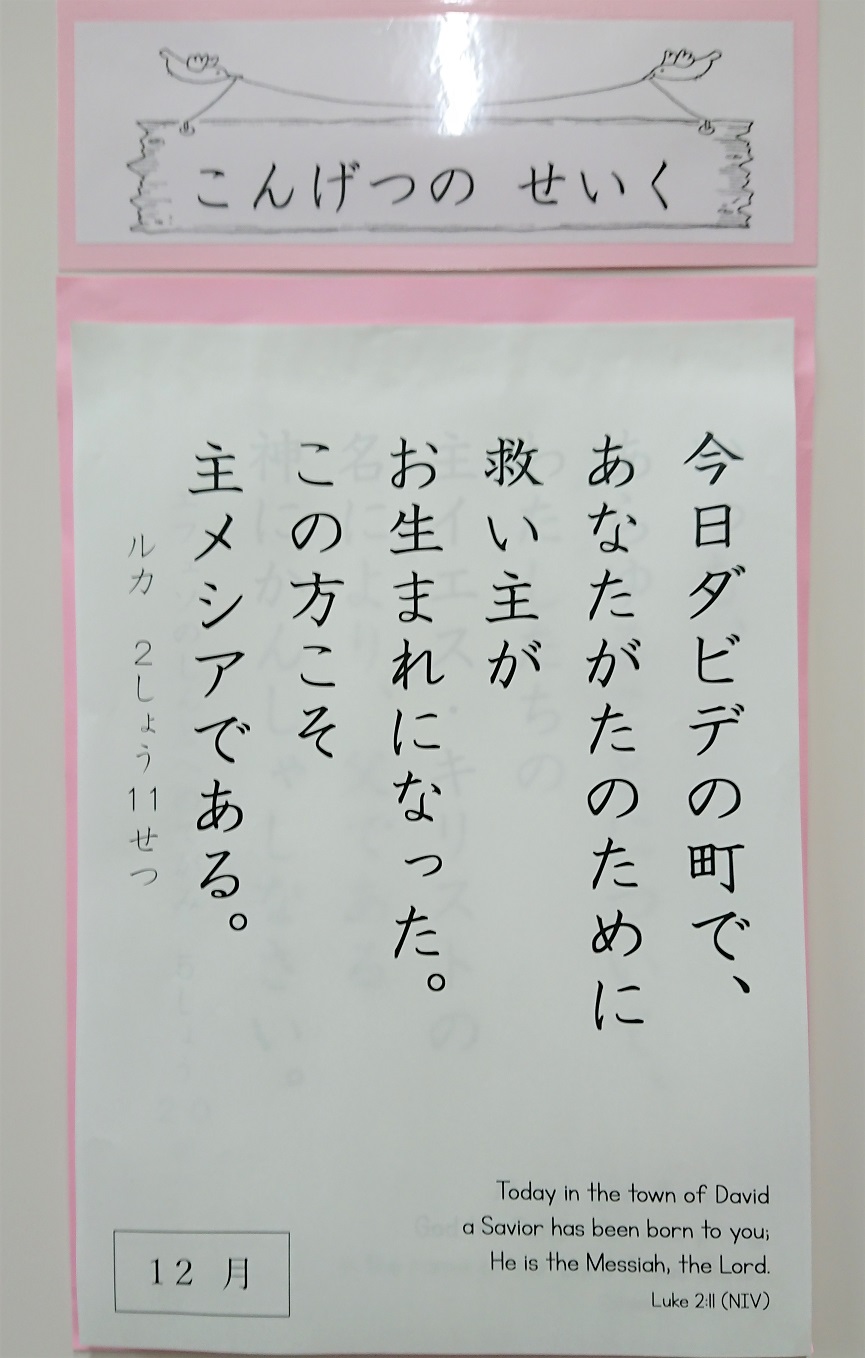 こんげつの せいく
今日ダビデの町で、
あなたがたのために
救い主が
お生まれになった。
この方こそ
主メシアである。
ルカ 2しょう11せつ
Today in the town of David
a Savior has been born to you;
He is the Messiah, the Lord.
Luke 2:11 (NIV)
12 月